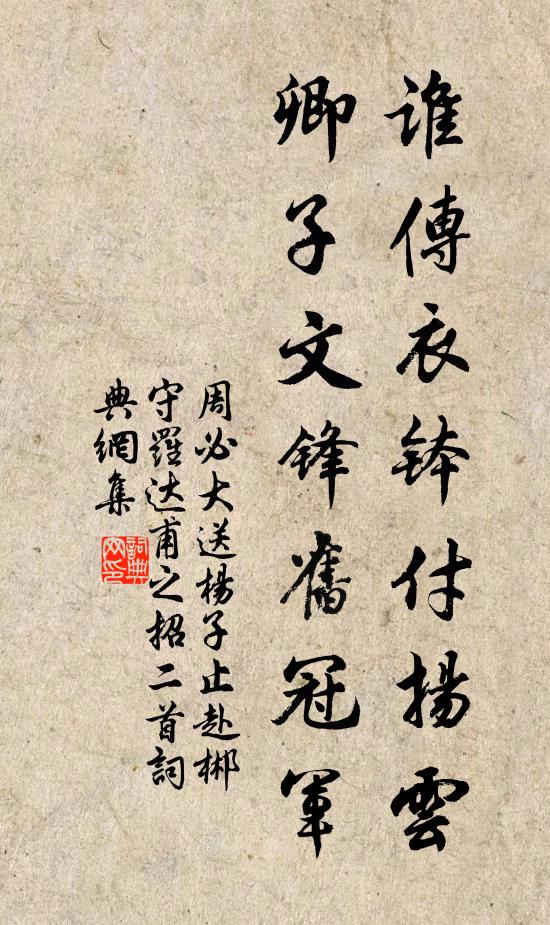 誰傳衣鉢付揚雲
卿子文鋒舊冠軍
周必大送楊子止赴郴
守羅达甫之招二首詞
典網集
詞典
网印